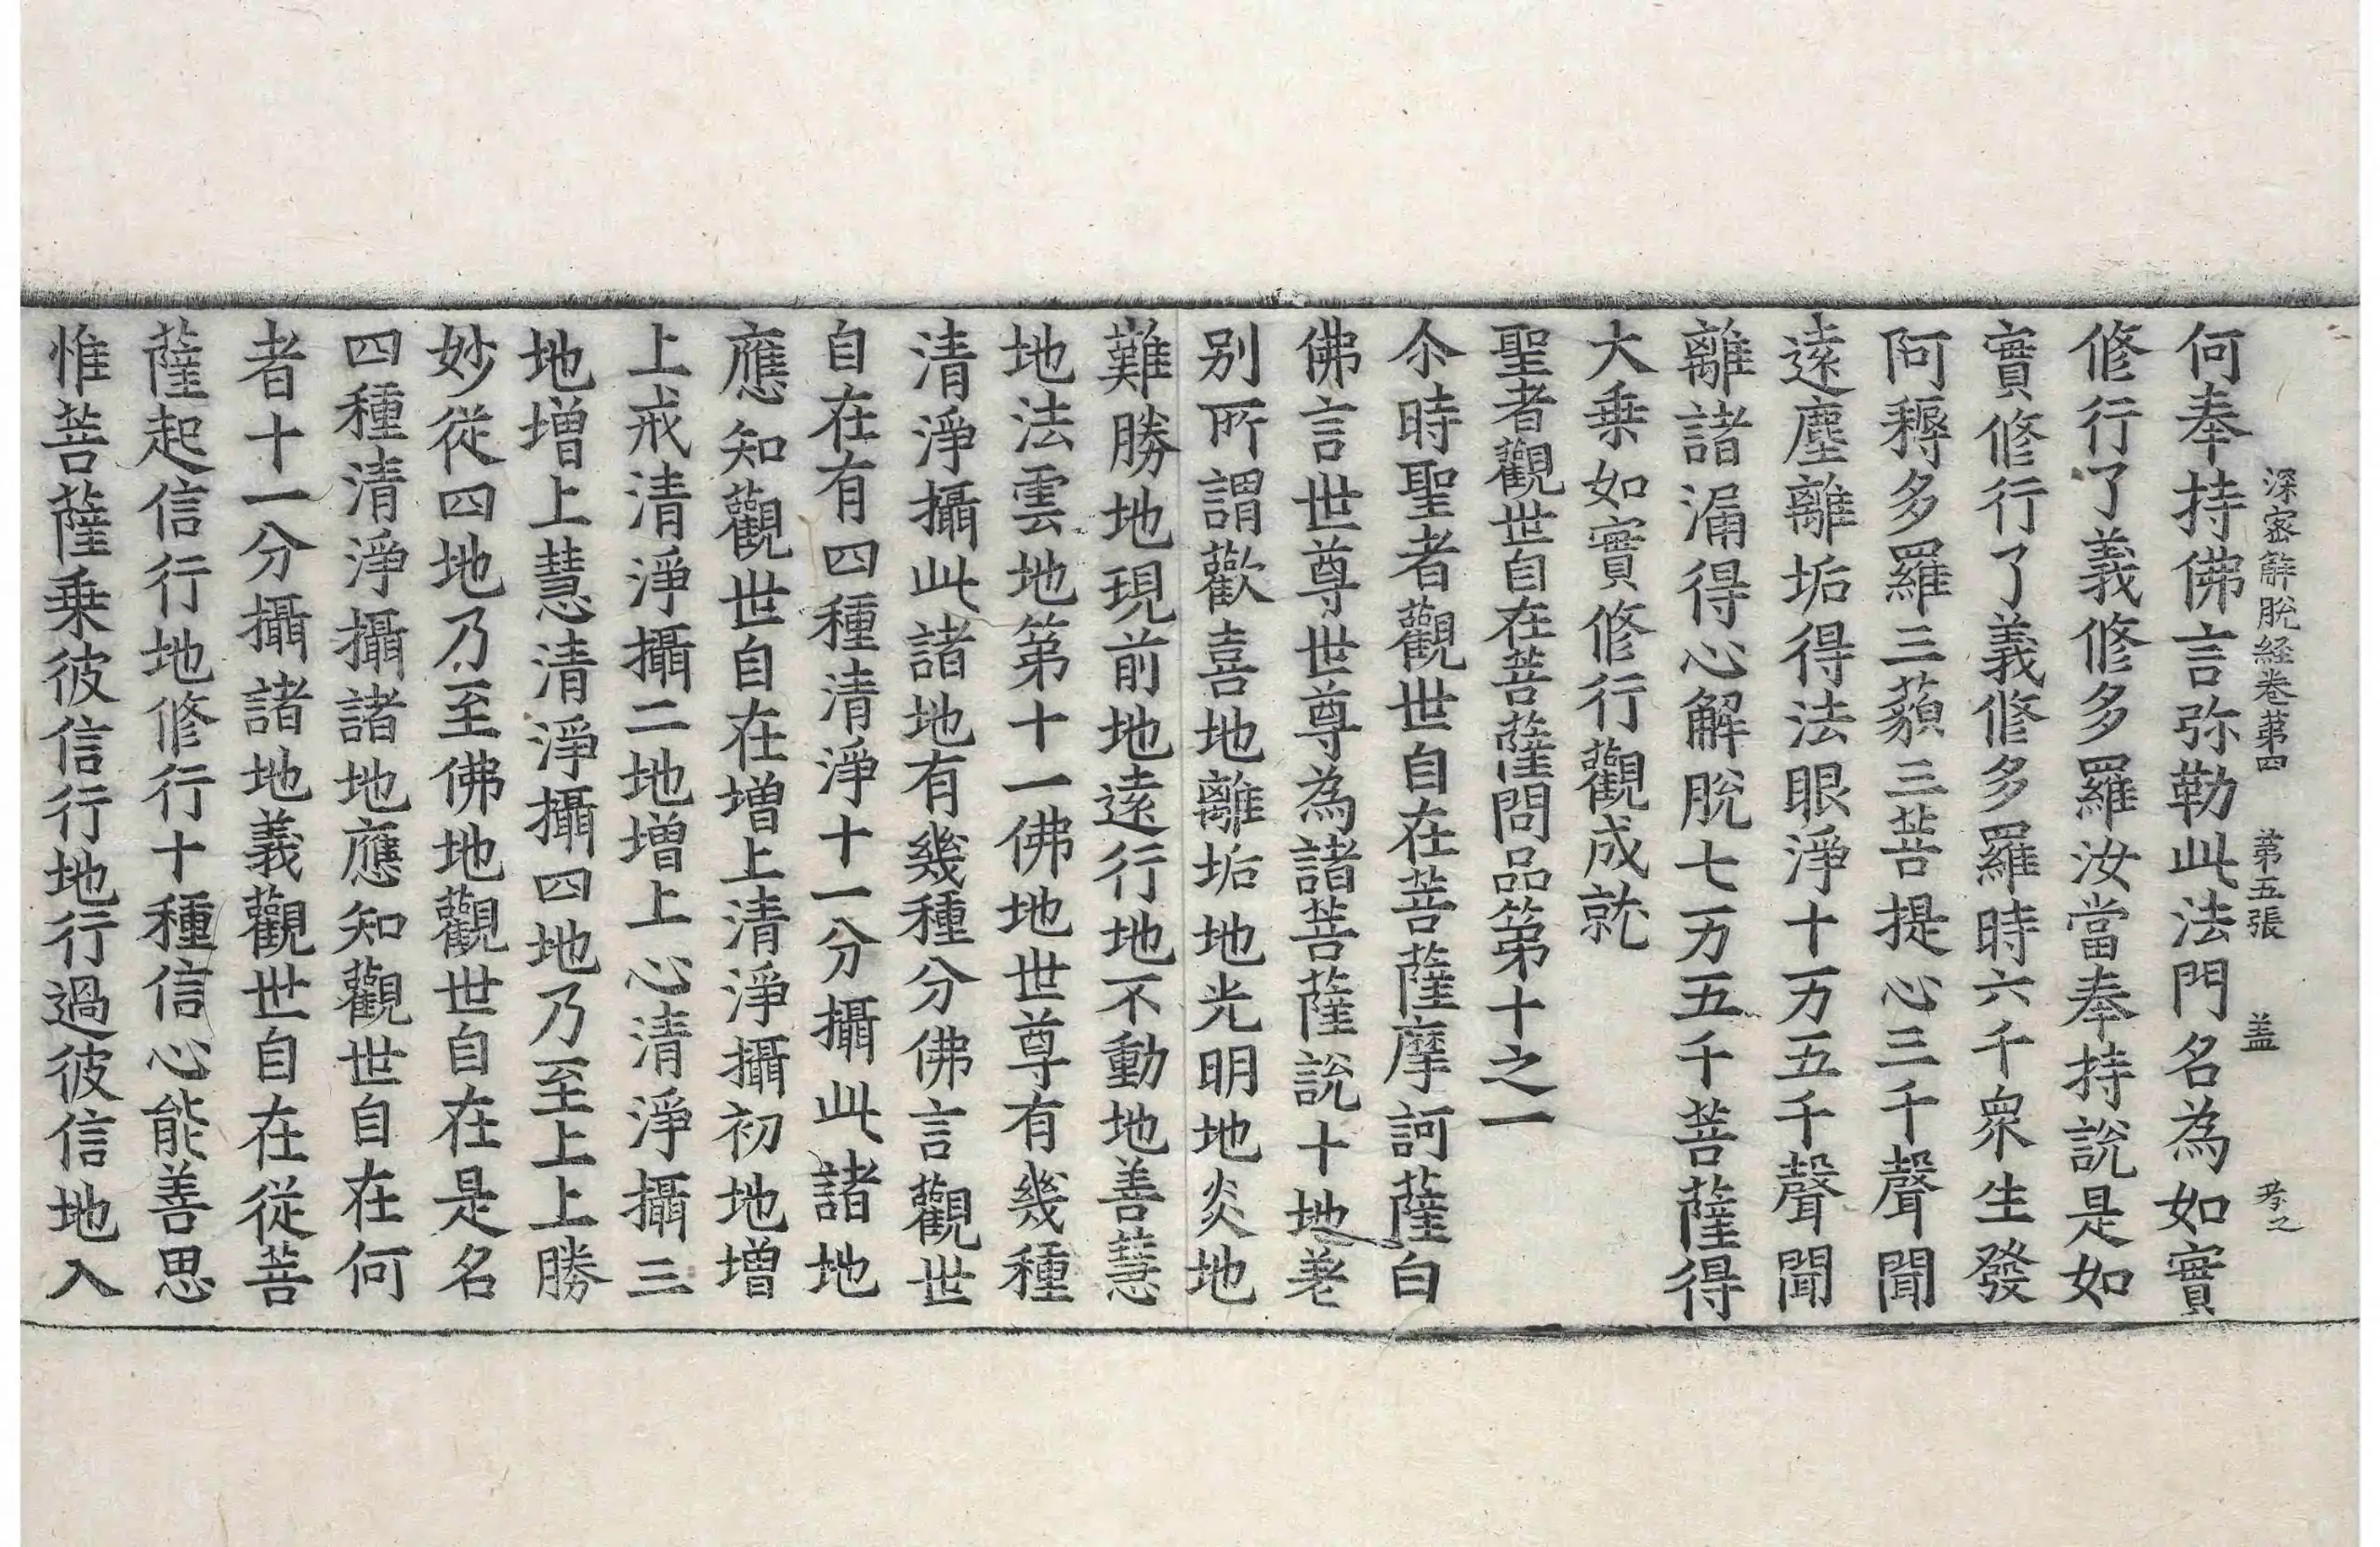 深宻解脫経卷第四 第五張 盖
何奉持佛言弥勒此法門名為如實
修行了義修多羅汝當奉持說是如
實修行了義修多羅時六千衆生發
阿耨多羅三藐三菩提心三千聲聞
遠塵離垢得法眼淨十万五千聲聞
離諸漏得心解脫七万五千菩薩得
大乗如實修行觀成就
聖者觀世自在菩薩問品第十之一
尒時聖者觀世自在菩薩摩訶薩白
佛言世尊世尊為諸菩薩說十地差
别所謂歡喜地離垢地光明地炎地
難勝地現前地遠行地不動地善慧
地法雲地第十一佛地世尊有幾種
清淨攝此諸地有幾種分佛言觀世
自在有四種清淨十一分攝此諸地
應知觀世自在增上清淨攝初地增
上戒清淨攝二地增上心清淨攝三
地增上慧清淨攝四地乃至上上勝
妙從四地乃至佛地觀世自在是名
四種清淨攝諸地應知觀世自在何
者十一分攝諸地義觀世自在從菩
薩起信行地修行十種信心能善思
惟菩薩乗彼信行地行過彼信地入